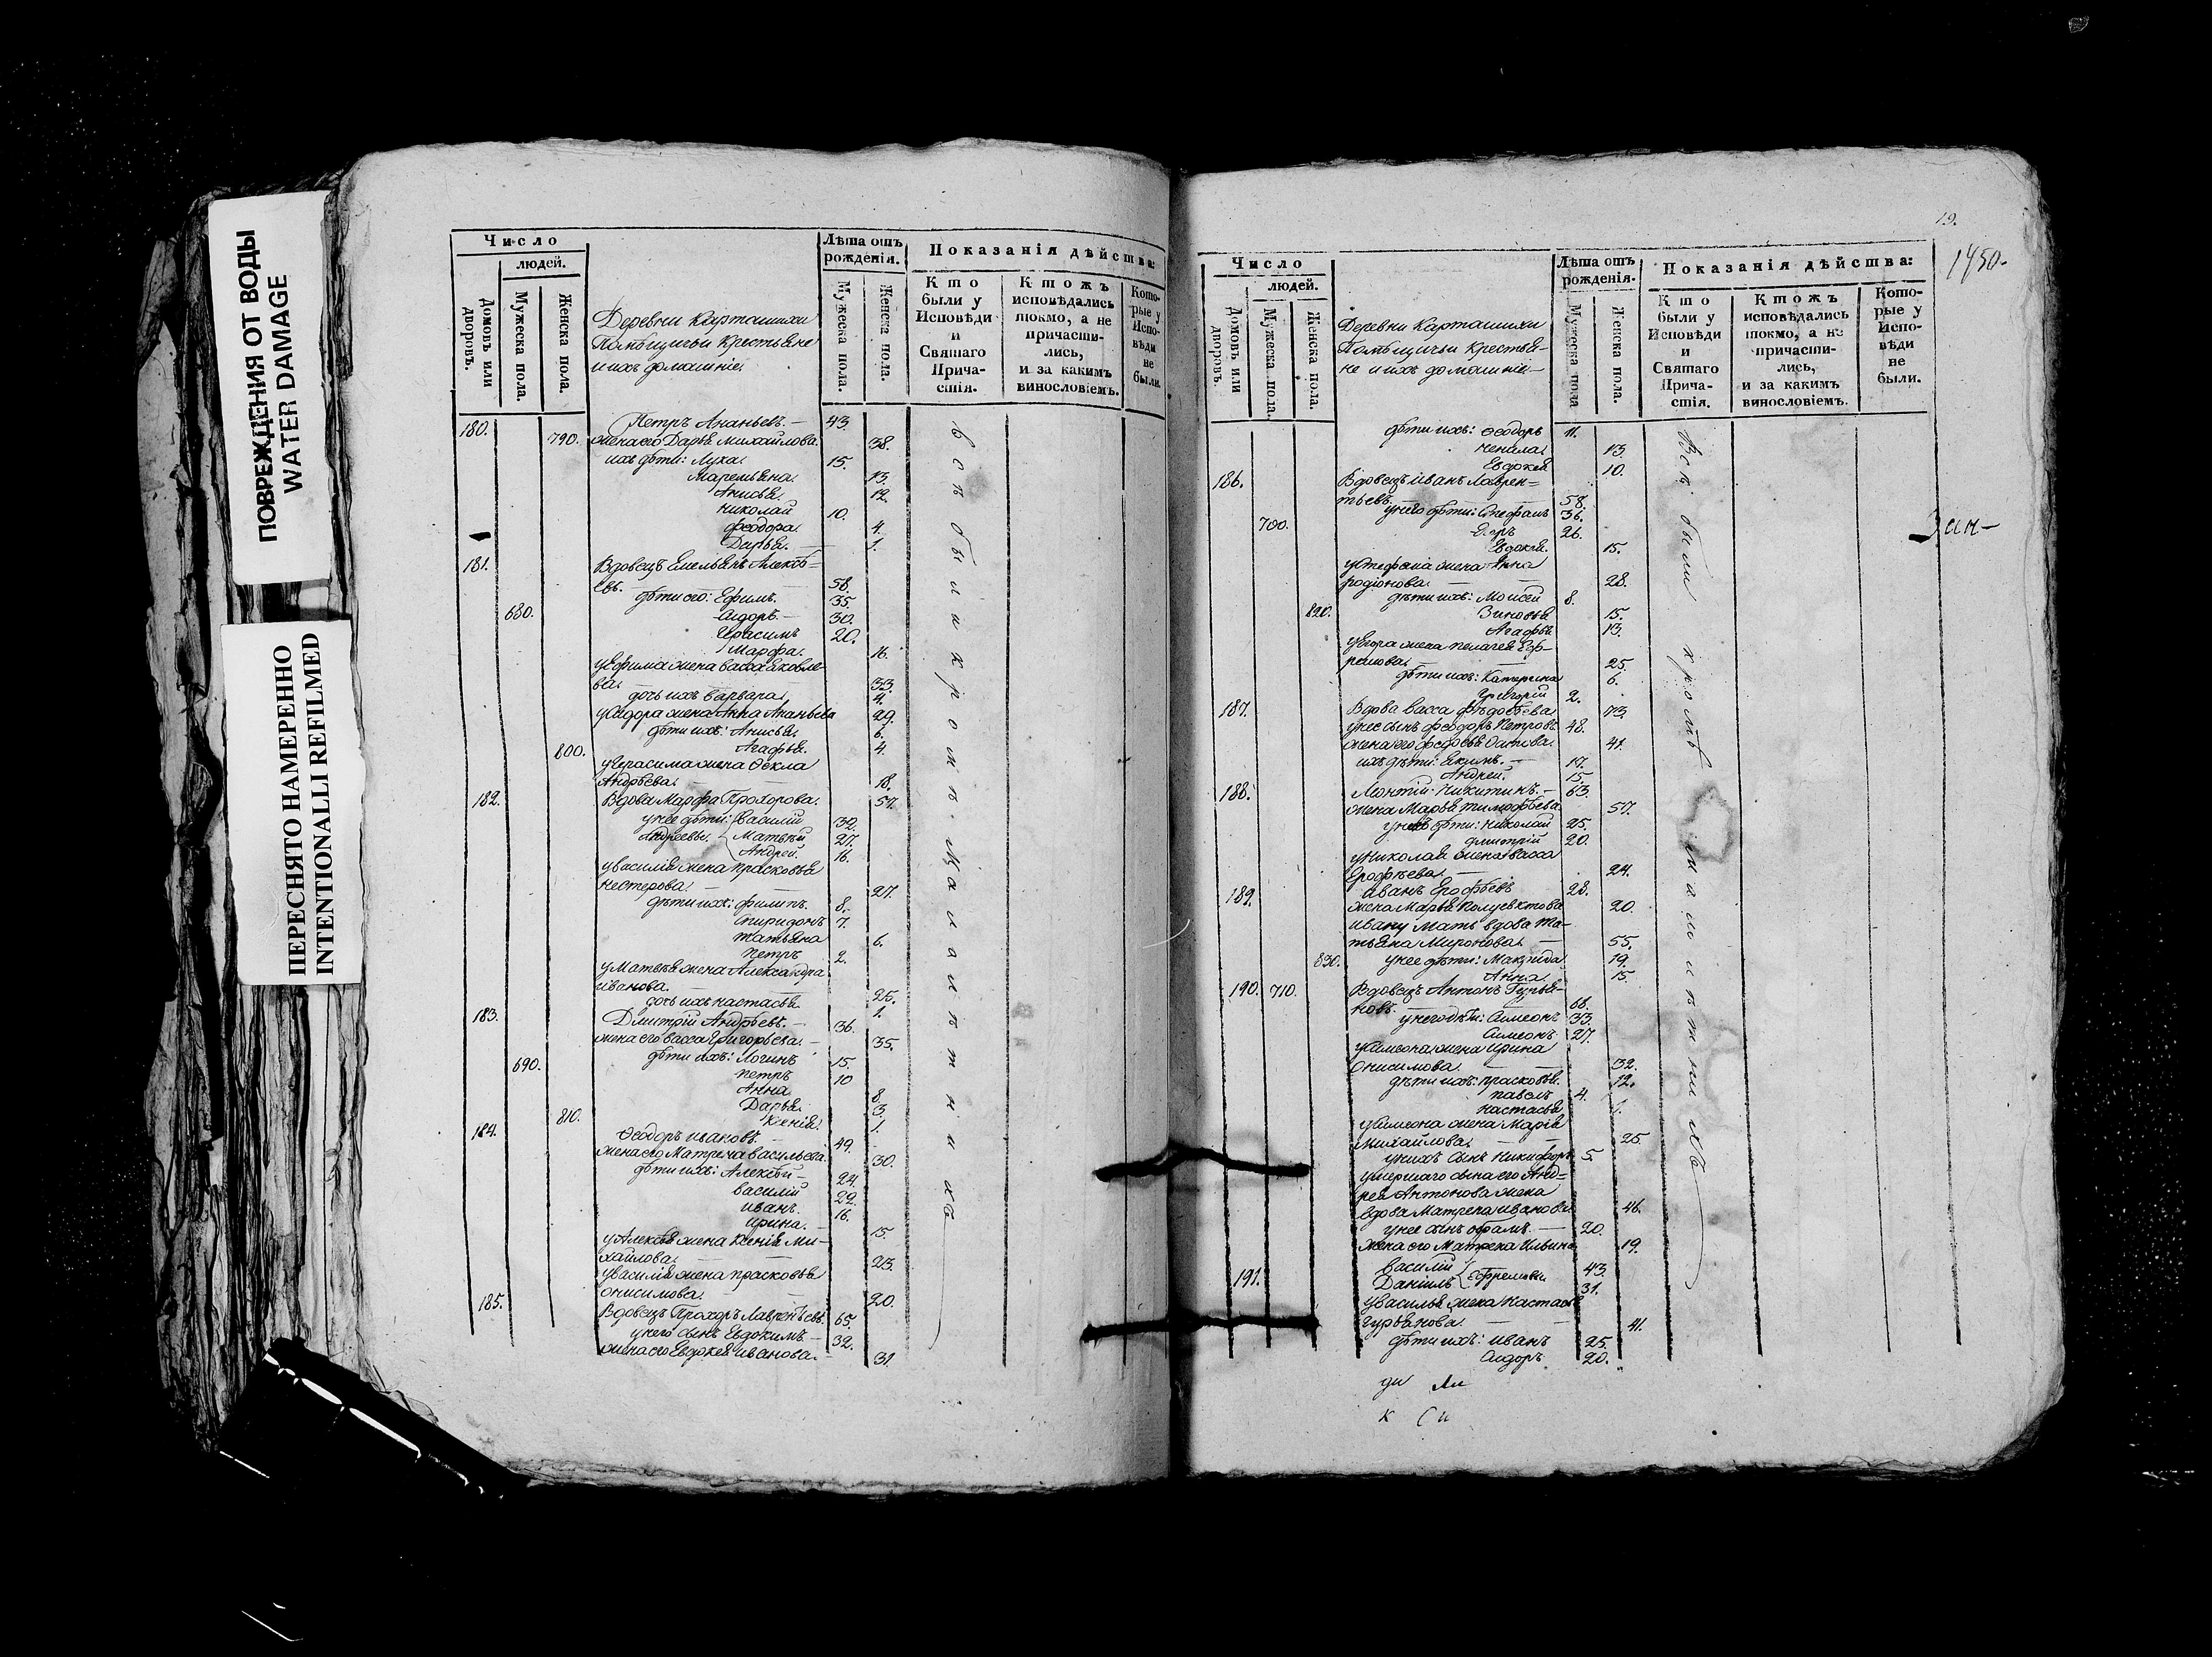 ПОВРЕЖДЕНИЯ ОТ ВОДЫ
WATER DAMAGE
ПЕРЕСНЯТО НАМЕРЕННО
INTENTIONALLI REFILMED
Число
людей.
Домовъ или дворовъ.
Мужеска пола.
Женска пола.
Деревни Карташихи
Помѣщичьи крестьяне
и ихъ домашніе
Лѣта отъ рожденія.
Мужеска пола.
Женска пола.
Показанія дѣйства:
Кто были у Исповѣди и Святаго Прича-стія.
Ктожъ исповѣдались токмо, а не причасти-лись, и за какимъ винословіемъ.
Кото-рые у Испо-вѣди не были.
180. Петръ Ананьевъ. 43.
790. жена его Дарья Михайлова. 38.
ихъ дѣти: Лука. 15.
13.
Анисья. 12.
Николай 10.
Феодора. 4.
Дарья. 1.
181. Вдовецъ Емельянъ Алексѣ-
евъ. 58.
дѣти его: Ефимъ. 35.
680. Сидоръ. 30.
Герасимъ 20.
Марфа. 16.
у Ефима жена Васса Яковле-
ва. 33.
дочь ихъ Варвара. 4.
у Сидора жена Анна Ананьева 29.
дѣти ихъ: Анисья. 6.
800. Агафья. 4.
у Герасима жена Ѳекла
Андрѣева. 18.
182. Вдова Марфа Прохорова. 57.
у нее дѣти: Василій 32.
Андреевы. Матвѣй 27.
Андрей. 16.
у Василія жена Прасковья
Нестерова. 27.
дѣти ихъ: Филипъ. 8.
Спиридонъ 7.
Татьяна 6.
Петръ 2.
у Матвѣя жена Александра
Иванова. 25.
дочь ихъ Настасья 1.
183. Дмитрій Андрѣевъ. 36.
жена его Васса Григорьева. 35.
дѣти ихъ: Логинъ 15.
690. Петръ 10
Анна 8.
Дарья 3.
810. Ксенія. 1.
184. Ѳеодоръ Ивановъ. 49.
жена его Матрена Васильева. 30.
дѣти ихъ: Алексѣй 24.
Василій 22.
Иванъ. 16.
Ирина. 15.
у Алексѣя жена Ксенія Ми-
хайлова. 23.
у Василія жена Прасковья
Онисимова. 20.
185. Вдовецъ Прохоръ Лаврентьевъ. 65.
у него сынъ Евдокимъ. 32.
жена его Евдокея Иванова. 31
19.
1450.
Число
людей.
Домовъ или дворовъ.
Мужеска пола.
Женска пола.
Деревни Карташихи
Помѣщичьи крестья-
не и ихъ домашніи
Лѣта отъ рожденія.
Мужеска пола
Женска пола.
Показанія дѣйства:
Кто были у Исповѣди и Святаго Прича-стія.
Ктожъ исповѣдались токмо, а не причасти-лись, и за какимъ винословіемъ.
Кото-рые у Испо-вѣди не были.
дѣти ихъ: Ѳеодоръ 11.
13.
Евдокея 10.
186. Вдовецъ Иванъ Лаврен-
тьевъ. 58.
у него дѣти: Стефанъ 36.
700. Егоръ 26.
Евдокея. 15.
у Стефана жена Анна
Родіонова. 28.
дѣти ихъ: Моисей 8.
820. Зиновья 15.
Агафья 13.
у Егора жена Пелагея Еф-
ремова. 25.
дѣти ихъ: Катерина 6.
Григорій 2.
187. Вдова Васса 73.
у нее сынъ Феодоръ Петровъ 48.
жена его 41.
ихъ дѣти: Екимъ. 17.
Андрей. 15.
188. Леонтій Никитинъ. 63.
жена Марья Тимофѣева 57.
дѣти: Николай 25.
Дмитрій 20.
у Николая жена Васса
Ерофѣева. 24.
189. Иванъ Ерофѣевъ 28.
жена Марья Полуектова 20.
Ивану мать вдова Та-
тьяна Миронова. 55.
830. у нее дѣти: 19.
Анна 15.
190. 710. Вдовецъ Антонъ Гурья-
новъ. 68.
у него дѣти: Симеонъ 33.
Симеонъ 27.
у Симеона жена Ирина
Онисимова. 32.
дѣти ихъ: Прасковья. 12.
Павелъ 4.
Настасья 1.
у Симеона жена Марія
Михайлова. 25
у нихъ сынъ Никифоръ 5.
умершаго сына его Анд-
рея Антонова жена
вдова Матрена Иванова 46.
у нее сынъ 20.
жена его Матрена Ильина 19.
191. Василій 43.
Даніилъ Ефремовы 31.
у Василья жена Настасья
Гурьянова. 41.
дѣти ихъ: Иванъ 25.
Сидоръ 20.